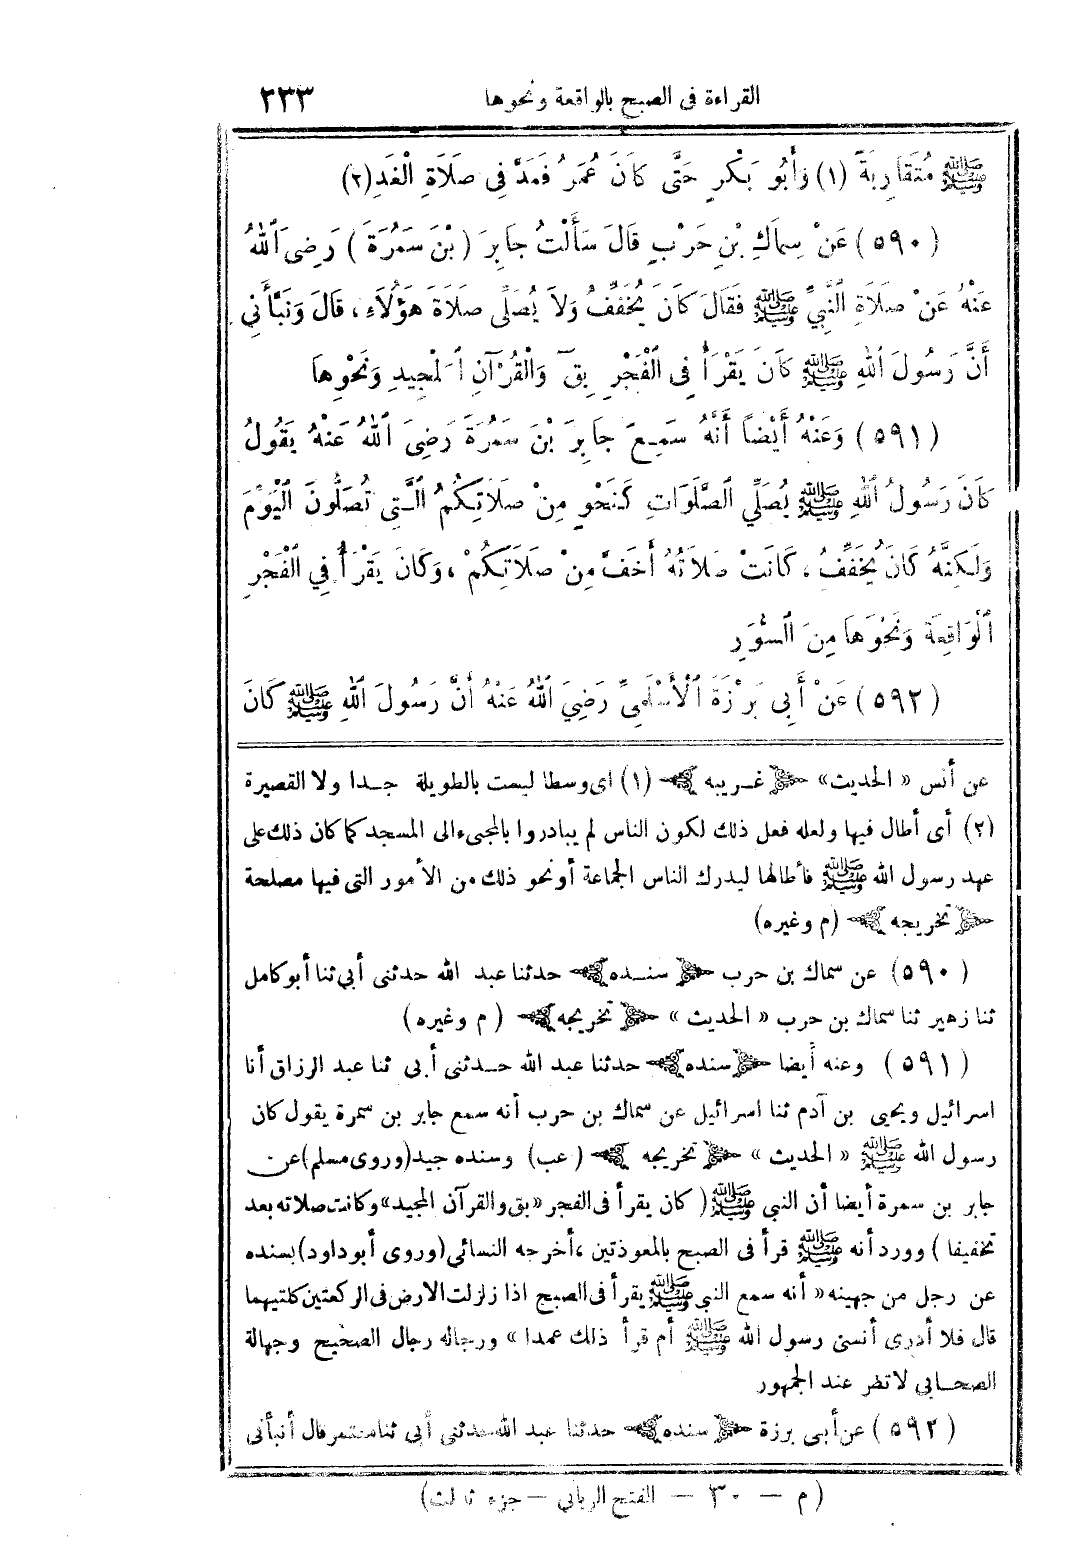 القراءة فى الصبح بالواقعة ونحوها ٢٣٣
ﷺ مُتَقَارِبَةً (١) وَأَبُو بَكْرٍ حَتَّى كَانَ عُمَرُ فَمَدَّ فِى صَلَاةِ الْغَدِ(٢)
(٥٩٠) عَنْ سِمَاكِ بْنِ حَرْبٍ قَالَ سَأَلْتُ جَابِرَ (بْنَ سَمُرَةَ) رَضِىَ ٱللهُ
عَنْهُ عَنْ صَلَاةِ النَّبِىِّ ﷺ فَقَالَ كَانَ يُخَفِّفُ وَلَا يُصَلِّى صَلَاةَ هَؤُلَاءِ، قَالَ وَنَبَّأَنِى
أَنَّ رَسُولَ ٱللهِ ﷺ كَانَ يَقْرَأُ فِى الْفَجْرِ بِقَ وَالْقُرْآنِ ٱلْمَجِيدِ وَنَحْوِهَا
(٥٩١) وَعَنْهُ أَيْضًا أَنَّهُ سَمِعَ جَابِرَ بْنَ سَمُرَةَ رَضِىَ ٱللهُ عَنْهُ يَقُولُ
كَانَ رَسُولُ ٱللهِ ﷺ يُصَلِّي الصَّلَوَاتِ كَنَحْوٍ مِنْ صَلَاتِكُمُ الَّتِى تُصَلُّونَ الْيَوْمَ
وَلَكِنَّهُ كَانَ يُخَفِّفُ، كَانَتْ صَلَاتُهُ أَخَفَّ مِنْ صَلَاتِكُمْ، وَكَانَ يَقْرَأُ فِي الْفَجْرِ
الْوَاقِعَةَ وَنَحْوَهَا مِنَ السُّوَرِ
(٥٩٢) عَنْ أَبِى بَرْزَةَ ٱلْأَسْلَمِىِّ رَضِيَ ٱللهُ عَنْهُ أَنَّ رَسُولَ ٱللهِ ﷺ كَانَ
عن أنس « الحديث» ﴿ غـريبه ﴾ (١) اى وسطا ليست بالطويلة جـدا ولا القصيرة
(٢) أى أطال فيها ولعله فعل ذلك لكون الناس لم يبادروا بالمجىء الى المسجد كما كان ذلك على
عهد رسول الله ﷺ فأطالها ليدرك الناس الجماعة أو نحو ذلك من الأمور التى فيها مصلحة
﴿ تخريجه ﴾ (م وغيره)
(٥٩٠) عن سماك بن حرب ﴿ سنـده ﴾ حدثنا عبد الله حدثنى أبي ثنا أبو كامل
ثنا زهير ثنا سماك بن حرب « الحديث » ﴿ تخريجه ﴾ (م وغيره)
(٥٩١) وعنه أيضا ﴿ سنده ﴾ حدثنا عبد الله حـدثنى أبى ثنا عبد الرزاق أنا
اسرائيل ويحيى بن آدم ثنا اسرائيل عن سماك بن حرب أنه سمع جابر بن سمرة يقول كان
رسول الله ﷺ « الحديث » ﴿ تخريجه ﴾ (عب) وسنده جيد (وروى مسلم) عن
جابر بن سمرة أيضا أن النبي ﷺ (كان يقرأ فى الفجر « بق والقرآن المجيد» وكانت صلاته بعد
تخفيفا) وورد أنه ﷺ قرأ فى الصبح بالمعوذتين ، أخرجه النسائي (وروى أبو داود) بسنده
عن رجل من جهينه « أنه سمع النبي ﷺ يقرأ فى الصبح اذا زلزلت الارض فى الركعتين كلتيهما
قال فلا أدرى أنسى رسول الله ﷺ أم قرأ ذلك عمدا » ورجاله رجال الصحيح وجهالة
الصحـابي لا تضر عند الجمهور
(٥٩٢) عن أبى برزة ﴿ سنده ﴾ حدثنا عبد الله حدثنى أبي ثنا معتمر قال أنبأنى
(م — ٣٠ — الفتح الرباني — جزء ثالث)